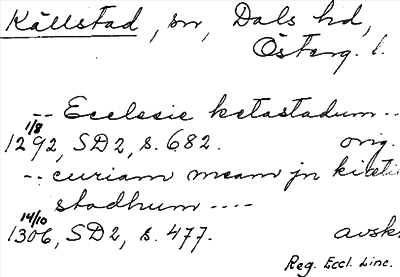 Källstad, sn, Dals hd,
Österg. l.
-- Ecclesie ketastadum --
1/8
1292, SD2, s. 682. orig.
-- curiam meam jn
stadhum ----
14/10
1306, SD2, s. 477. avskr.
Reg. Eccl. Linc.